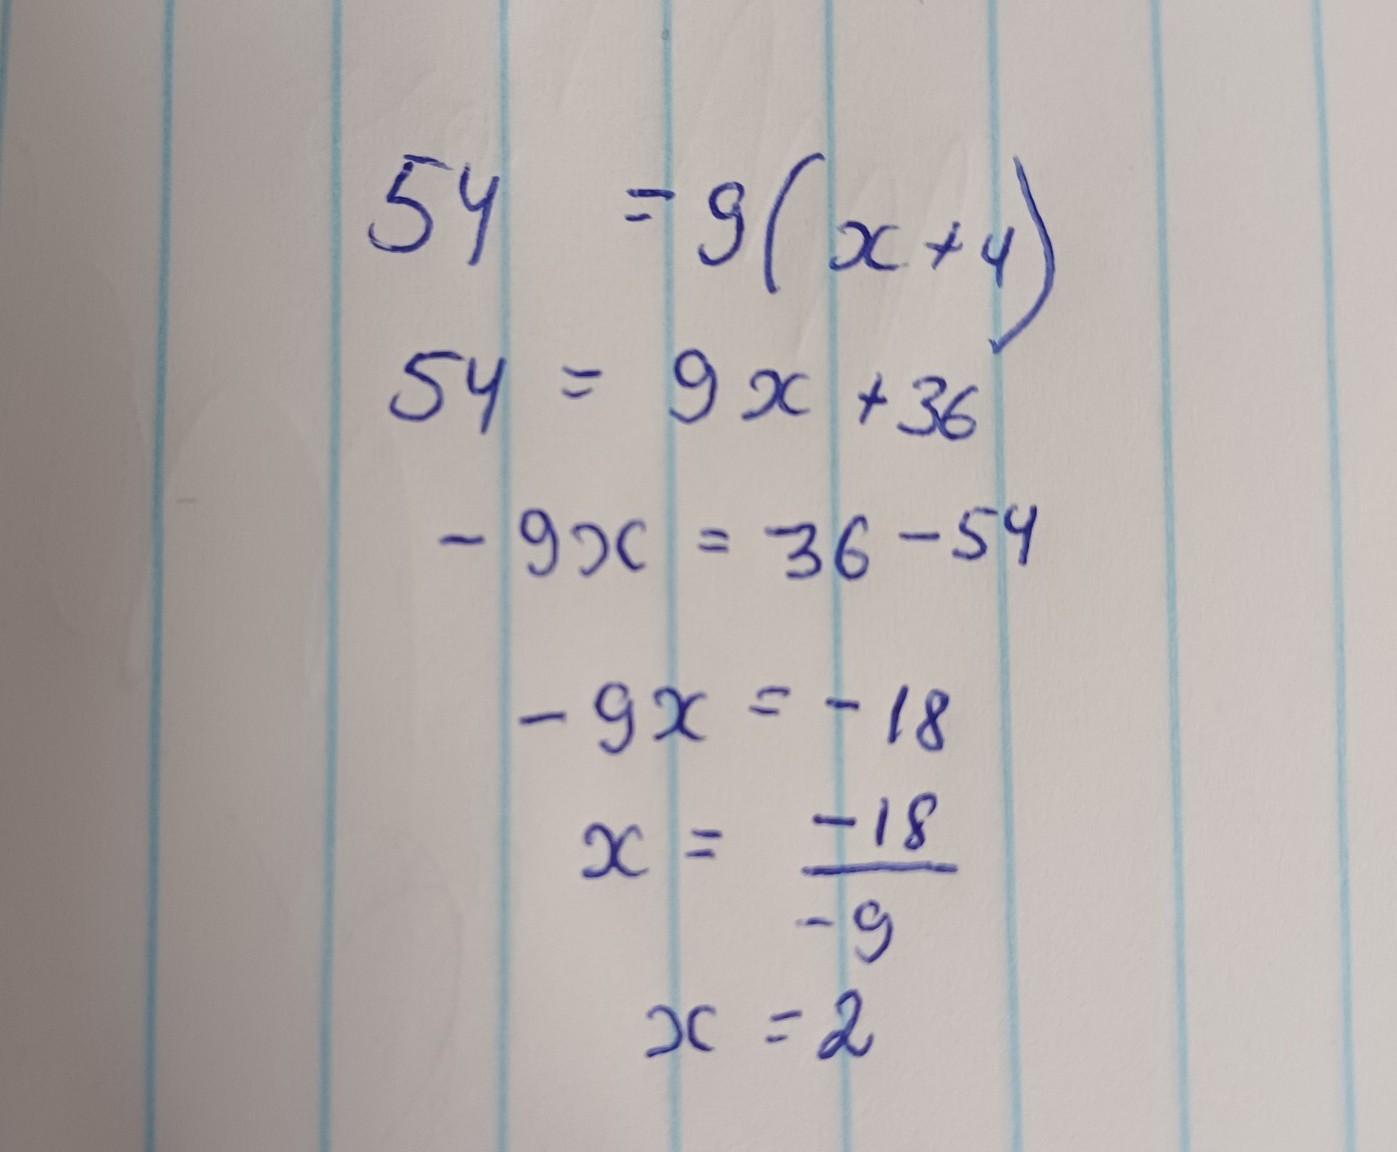 54 = 9(x+4)
54 = 9x +36
-9x = 36 -54
-9x = -18
x = -18/-9
x = 2